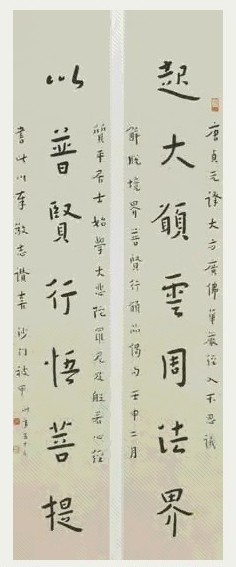 唐貞元譯大方廣佛華嚴經入不思議
起大願雲周法界
解脫境界普賢行願品偈句 壬申二月
質平居士始學大悲陀羅尼及般若心經
以普賢行悟菩提
書此以奉敬志讚喜 沙門被甲